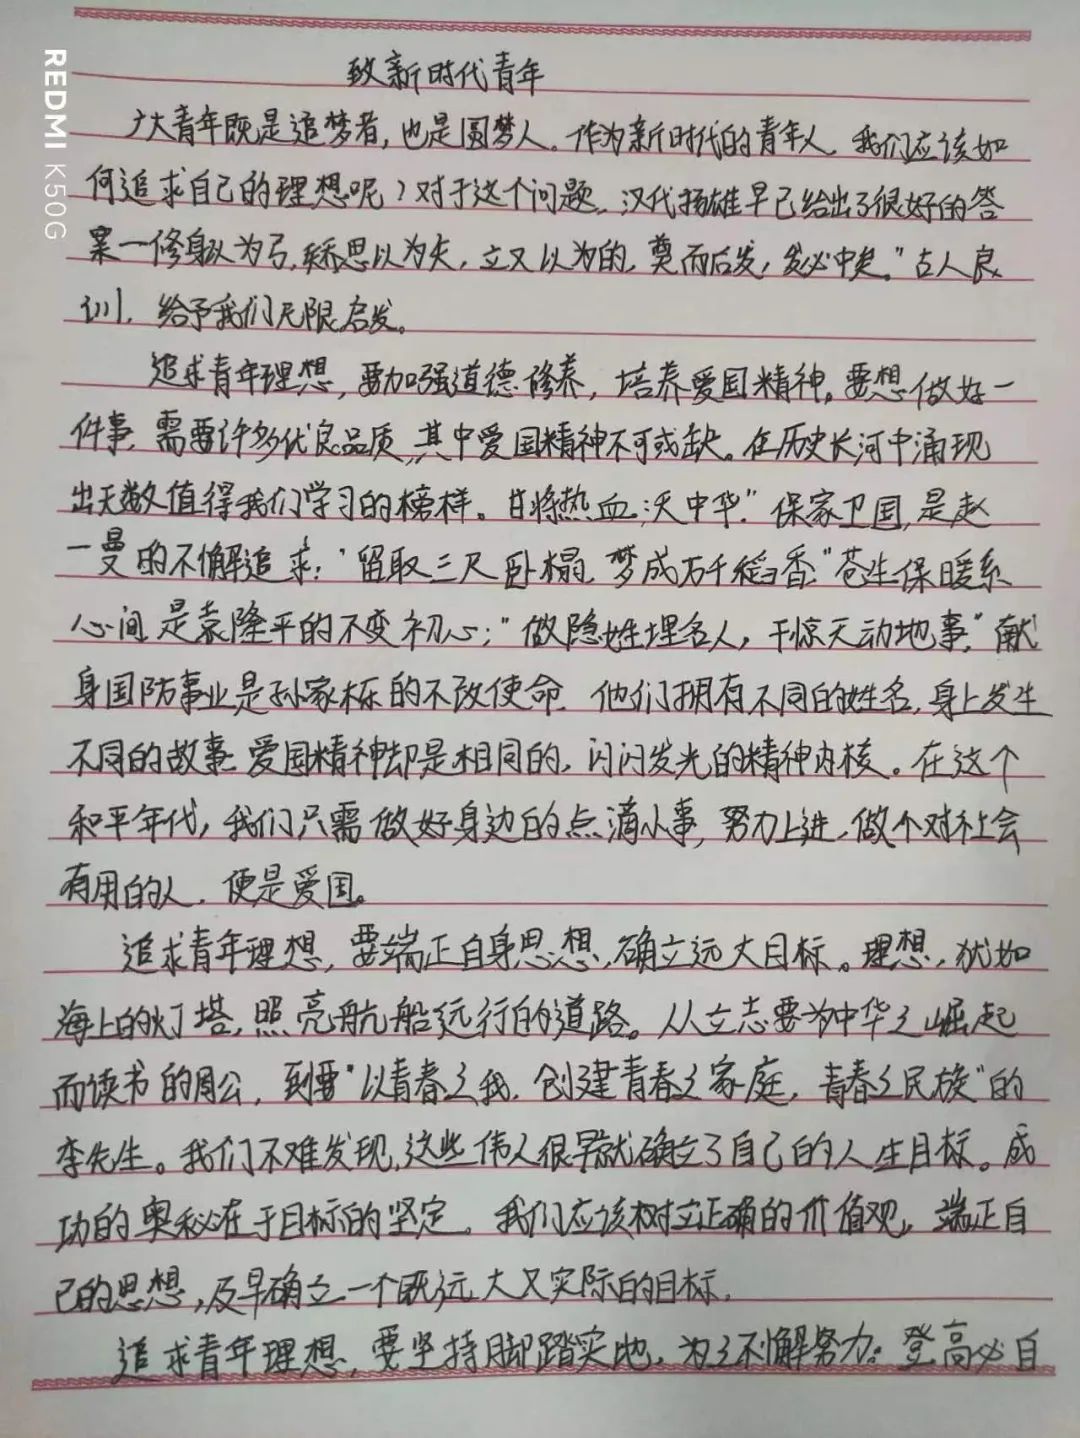 REDMI K50G
致新时代青年
广大青年既是追梦者，也是圆梦人。作为新时代的青年人，我们应该如
何追求自己的理想呢？对于这个问题，汉代扬雄早已给出了很好的答
案一修身以为弓，矫思以为矢，立义以为的，奠而后发，发必中矣。"古人良
训，给予我们无限启发。
追求青年理想，要加强道德修养，培养爱国精神。要想做好一
件事，需要许多优良品质，其中爱国精神不可或缺。在历史长河中涌现
出无数值得我们学习的榜样。甘将热血沃中华"保家卫国，是赵
一曼的不懈追求；"留取三尺卧榻，梦成万千稻香"苍生保暖系
心间是袁隆平的不变初心；"做隐姓埋名人，干惊天动地事，"献
身国防事业是孙家栋的不改使命。他们拥有不同的姓名，身上发生
不同的故事，爱国精神却是相同的，闪闪发光的精神内核。在这个
和平年代，我们只需做好身边的点滴小事，努力上进，做个对社会
有用的人，便是爱国。
追求青年理想，要端正自身思想，确立远大目标。理想，犹如
海上的灯塔，照亮航船远行的道路。从立志要为中华之崛起
而读书的周公，到要"以青春之我，创建青春之家庭，青春之民族"的
李先生。我们不难发现，这些伟人很早就确立了自己的人生目标。成
功的奥秘在于目标的坚定。我们应该树立正确的价值观，端正自
己的思想，及早确立一个既远大又实际的目标。
追求青年理想，要坚持脚踏实地，为之不懈努力。登高必自